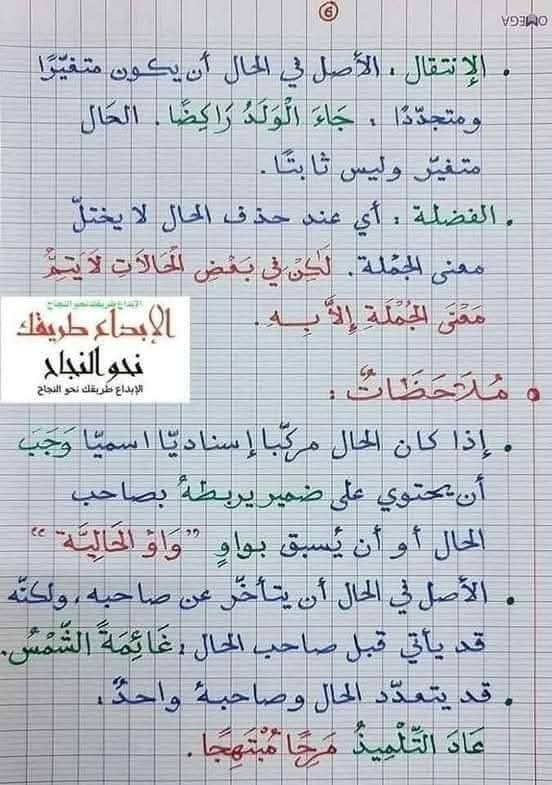 6
OMEGA
. الإنتقال : الأصل في الحال أن يكون متغيّرًا
ومتجدّدًا : جَاءَ الْوَلَدُ رَاكِضًا. الحَال
متغيّر وليس ثابتًا.
. الفضلة : أي عند حذف الحال لا يختلّ
معنى الجُملة. لَكِنْ فِي بَعْضِ الْحَالَاتِ لَا يَتِمُّ
مَعْنَى الْجُمْلَةِ إِلَّا بِهِ.
الإبداع طريقك نحو النجاح
الإبداع طريقك
نحو النجاح
الإبداع طريقك نحو النجاح
• مُلَاحَظَاتٌ :
. إذا كان الحال مركّبا إسناديّا اسميّا وَجَبَ
أن يحتوي على ضمير يربطهُ بصاحب
الحال أو أن يُسبق بواوٍ "وَاوُ الْحَالِيَّة"
. الأصل في الحال أن يتأخّر عن صاحبه، ولكنّه
قد يأتي قبل صاحب الحال : غَائِمَةً الشَّمْسُ.
. قد يتعدّد الحال وصاحبهُ واحدٌ :
عَادَ التِّلْمِيذُ مَرِحًا مُبْتَهِجًا.